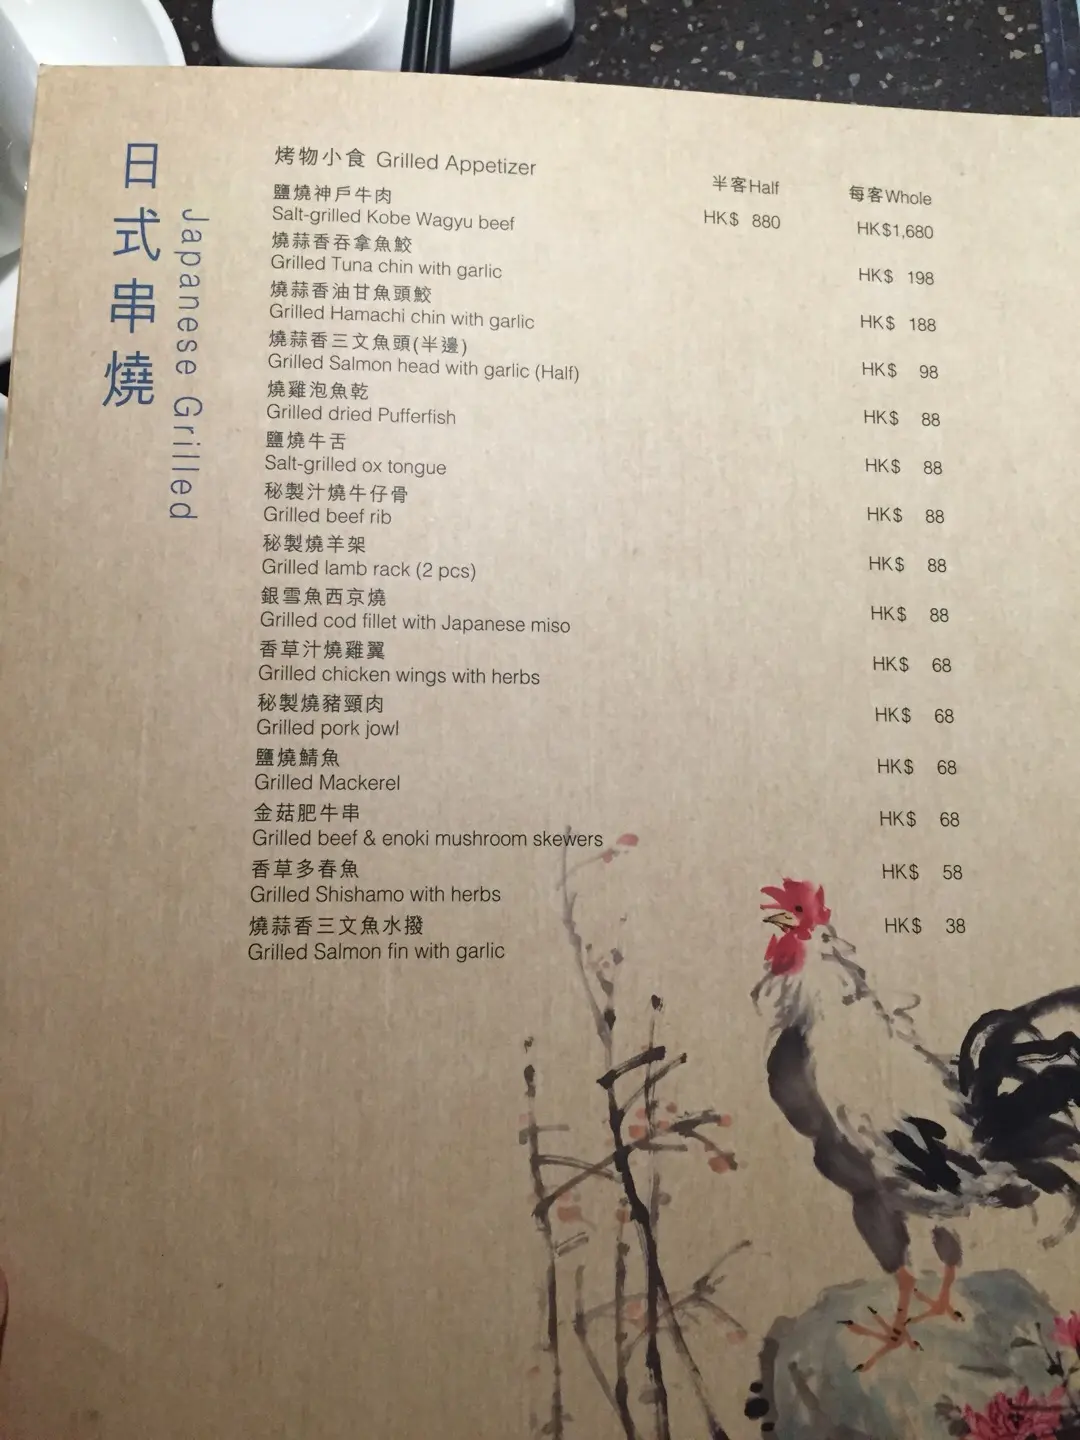 日式串燒
Japanese Grilled
烤物小食 Grilled Appetizer
半客Half 每客Whole
鹽燒神戶牛肉
Salt-grilled Kobe Wagyu beef HK$ 880 HK$1,680
燒蒜香吞拿魚鮫
Grilled Tuna chin with garlic HK$ 198
燒蒜香油甘魚頭鮫
Grilled Hamachi chin with garlic HK$ 188
燒蒜香三文魚頭(半邊)
Grilled Salmon head with garlic (Half) HK$ 98
燒雞泡魚乾
Grilled dried Pufferfish HK$ 88
鹽燒牛舌
Salt-grilled ox tongue HK$ 88
秘製汁燒牛仔骨
Grilled beef rib HK$ 88
秘製燒羊架
Grilled lamb rack (2 pcs) HK$ 88
銀雪魚西京燒
Grilled cod fillet with Japanese miso HK$ 88
香草汁燒雞翼
Grilled chicken wings with herbs HK$ 68
秘製燒豬頸肉
Grilled pork jowl HK$ 68
鹽燒鯖魚
Grilled Mackerel HK$ 68
金菇肥牛串
Grilled beef & enoki mushroom skewers HK$ 68
香草多春魚
Grilled Shishamo with herbs HK$ 58
燒蒜香三文魚水撥
Grilled Salmon fin with garlic HK$ 38